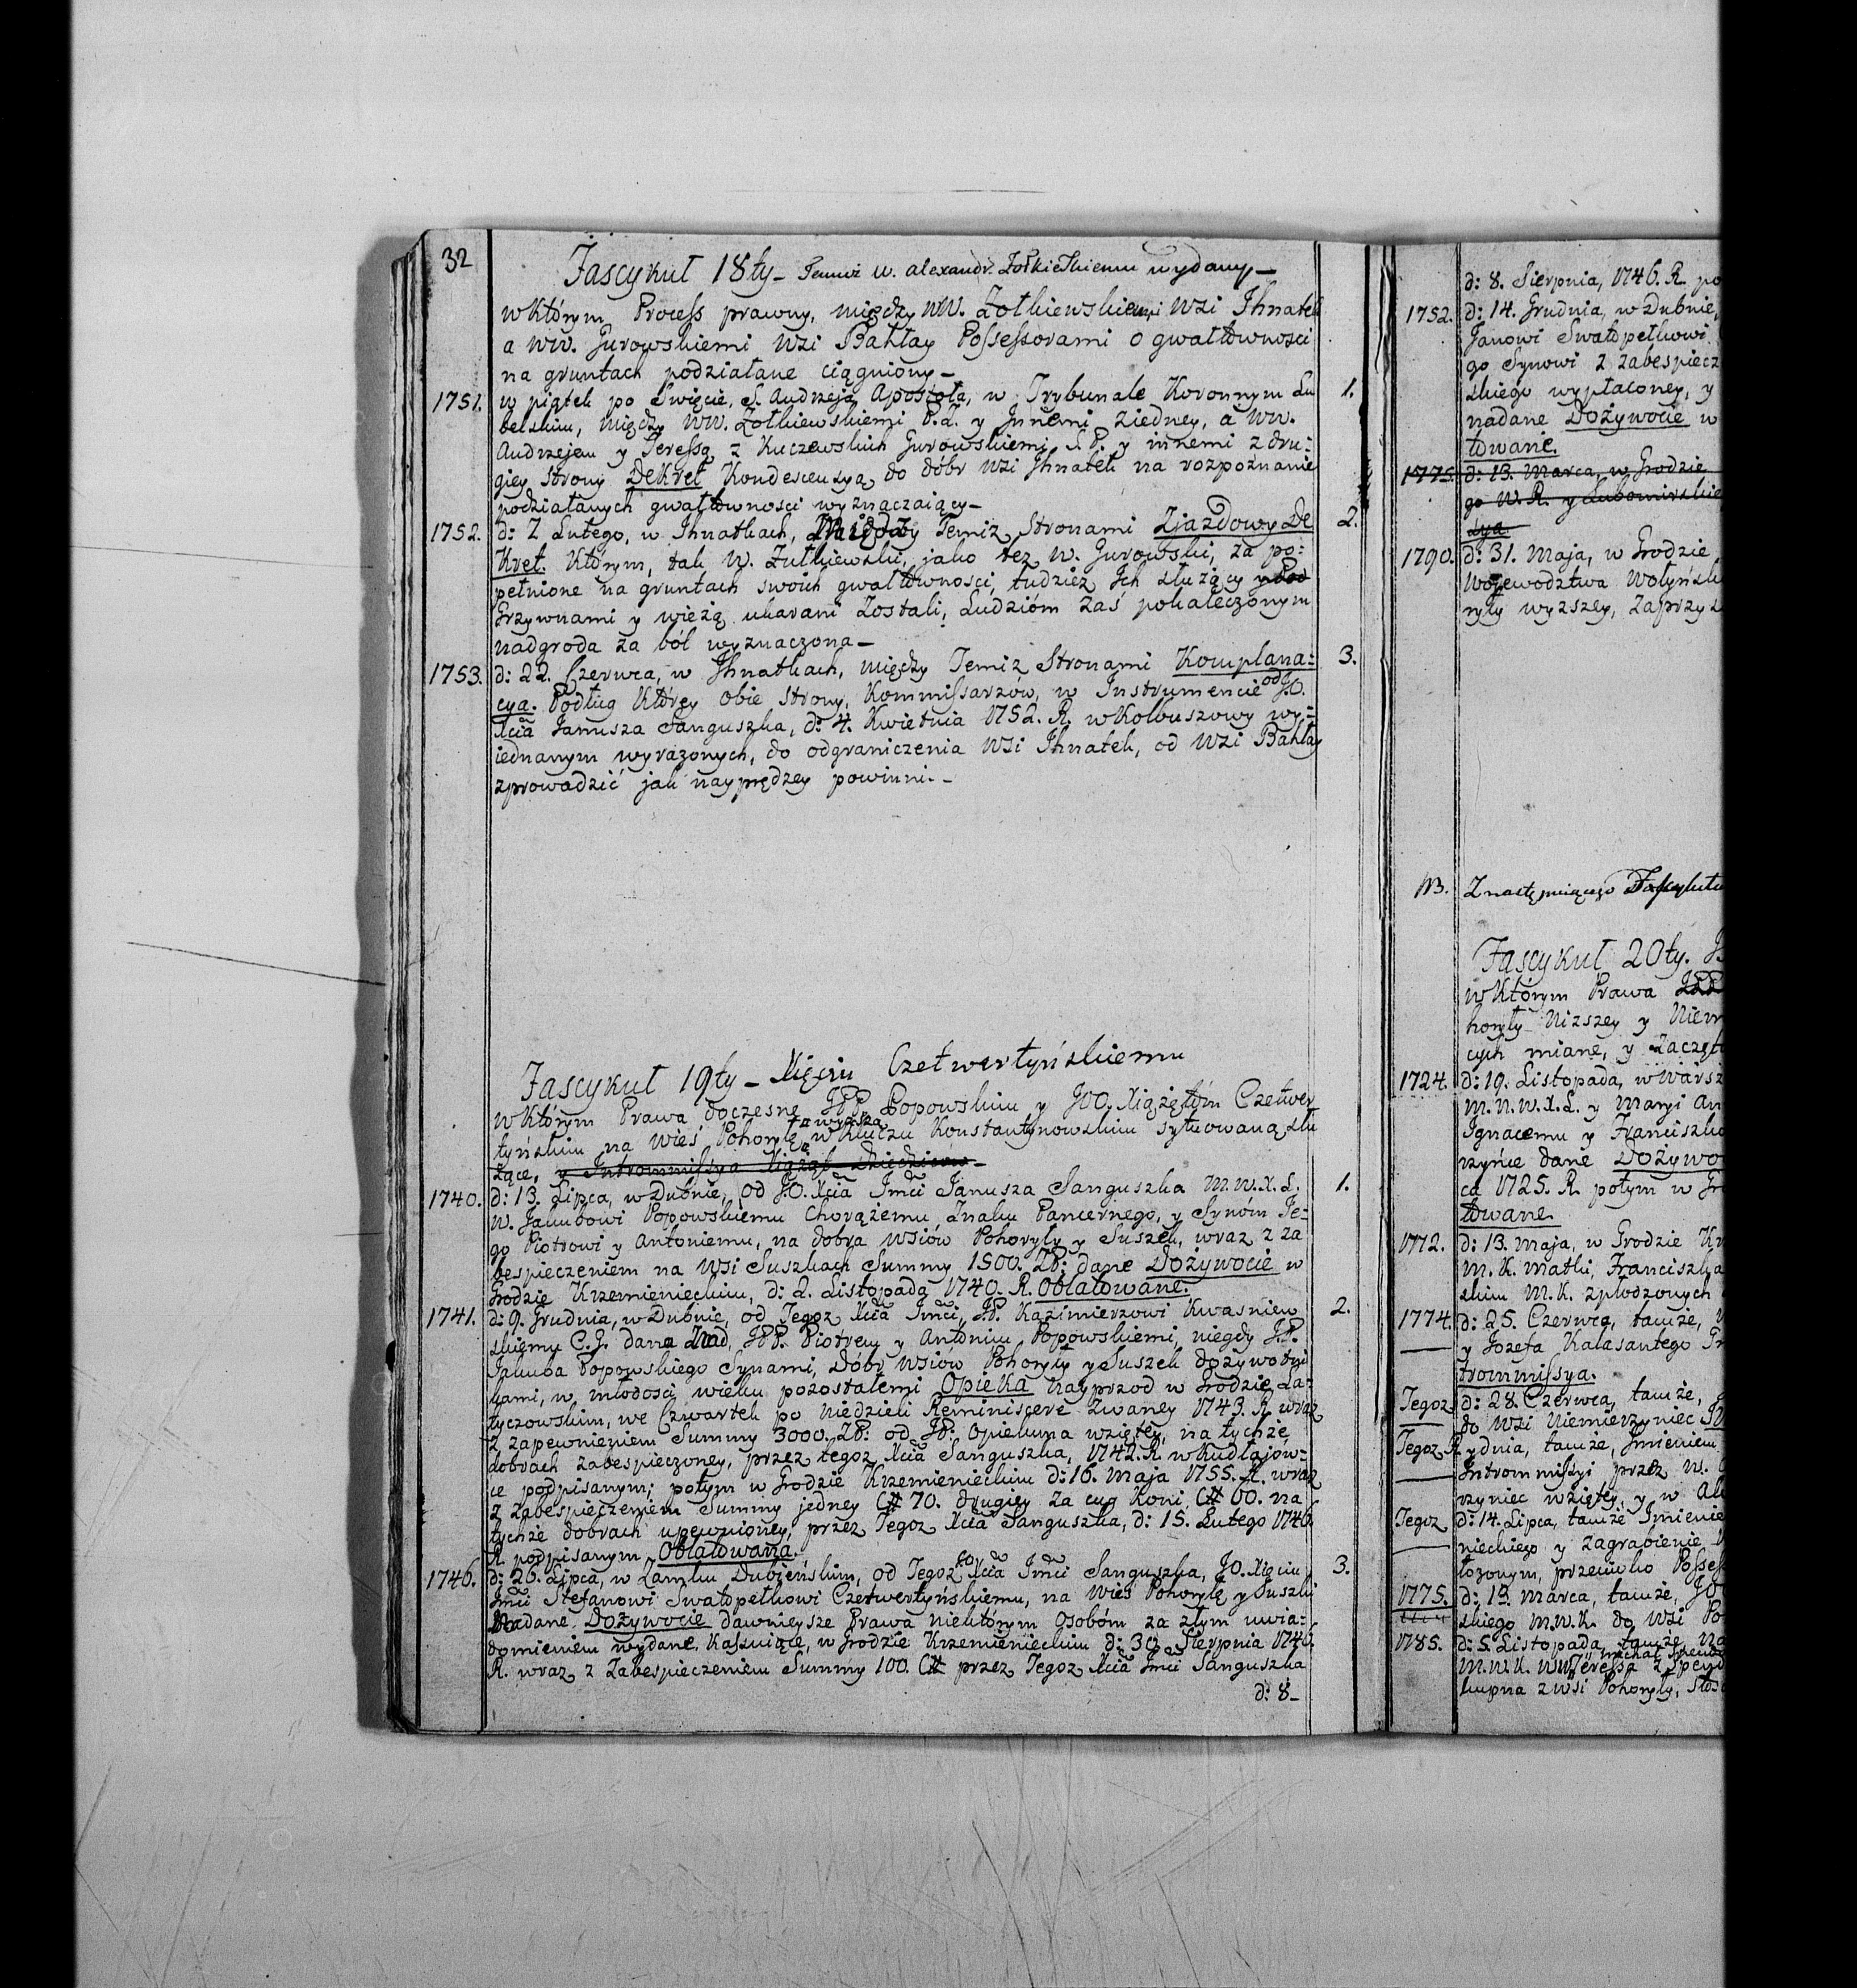 32
Fascykuł 18ty - Temuż W. Alexandr. Żołkiewskiemu wydany -
w którym Process prawny, między WW. Żołkiewskiemi wsi Ihnatek
a WW. Gurowskiemi wsi Bahłay Possessorami o gwałtowności
na gruntach podziałane ciągniony -
1751. w piątek po Święcie, S. Andrzeja Apostoła, w Trybunale Koronnym Lu 1.
belskim, między WW. Żołkiewskiemi P.Z. y Innemi z iedney, a WW.
Andrzejem y Teressą z Kuczewskich Gurowskiemi S.P. y innemi z dru:
giey strony Dekret Kondescensyą do dóbr wsi Ihnatek na rozpoznanie
podziałanych gwałtowności wyznaczaiący -
1752. d: 7 Lutego, w Ihnatkach, Między Temiż Stronami Zjazdowy De 2.
kret. Którym, tak W. Żułkiewski, jako też W. Gurowski, za po:
pełnione na gruntach swoich gwałtowności, tudzież Ich służący
Grzywnami y wieżą ukarani zostali, Ludzióm zaś pokaleczonym
nadgroda za ból wyznaczona -
1753. d: 22. Czerwca, w Ihnatkach, między Temiż Stronami Komplana: 3.
cya. Podług Którey obie strony, Kommissarzów, w Instrumencie od JO.
Xcia Janusza Sanguszka, d: 4. Kwietnia 1752. R. w Kolbuszowy wy:
iednanym wyrażonych, do odgraniczenia wsi Ihnatek, od wsi Bahłay
zprowadzić jak nayprędzey powinni. -
Fascykuł 19ty - Xięciu Czetwertyńskiemu
w Którym Prawa doczesne JPP. Popowskim y JOO. Xiążętóm Czetwer
tyńskim na wieś Pohoryłę wyższą w Kluczu Konstantynowskim sytuowaną słu
żące, y Intrommissya Xiążąt Dziedziców -
1740. d: 13. Lipca, w Dubnie, od JO. Xcia Imci Janusza Sanguszka M.W.X.L. 1.
W. Jakubowi Popowskiemu Chorążemu Znaku Pancernego, y Synóm Je:
go Piotrowi y Antoniemu, na dobra wsiów Pohoryły y Suszek, wraz z za
bespieczeniem na wsi Suszkach Summy 1500. ZP: dane Dożywocie w
Grodzie Krzemienieckim, d: 2. Listopada 1740. R. Oblatowane.
1741. d: 9. Grudnia, w Dubnie, od Tegoż Xcia Imci, JP. Kazimierzowi Kwasniew 2.
skiemu C.G. dana Nad, JPP. Piotrem y Antonim Popowskiemi, niegdy JP.
Jakuba Popowskiego Synami, Dóbr wsiów Pohoryły y Suszek dożywotni
kami, w młodości wieku pozostałemi Opieka Nayprzod w Grodzie La:
tyczowskim, we Czwartek po Niedzieli Reminiscere Zwaney 1743. R. wraz
z zapewnieniem Summy 3000. ZP: od JP: Opiekuna wziętey, na tychże
dobrach zabespieczoney, przez tegoż Xcia Sanguszka, 1742. R. w Kudłajow:
ce podpisanym; potym w Grodzie Krzemienieckim d: 16. Maja 1755. R. wraz
z zabespieczeniem Summy jedney C# 70. drugiey za cug Koni, C# 60. na
tychże dobrach upewnioney, przez Tegoż Xcia Sanguszka, d: 15. Lutego 1746.
R. podpisanym Oblatowana.
1746. d: 26. Lipca, w Zamku Dubieńskim, od Tegoż JO Xcia Imci Sanguszka, JO. Xięciu 3.
Imci Stefanowi Swatopełkowi Czetwertyńskiemu, na wieś Pohoryłę y Suszki
Nadane Dożywocie dawnieysze Prawa niektórym Osobóm za złym uwia:
domieniem wydane, Kassuiące, w Grodzie Krzemienieckim d: 30. Sierpnia 1746.
R. wraz z Zabespieczeniem Summy 100. C# przez Tegoż Xcia Imci Sanguszka
d: 8 -
d: 8. Sierpnia, 1746. R. po
1752. d: 14. Grudnia, w Dubnie,
Janowi Swatopełkowi
go Synowi z zabespiecz
skiego wypłaconey, y
nadane Dożywocie w
towane.
1775. d: 13. Marca, w Grodzie
go W. R. y Lubomirskie
sya
1790. d: 31. Maja, w Grodzie
Województwa Wołyńsk
ryły wyższey, zaprzys
NB. Z następuiącego Fascykułu
Fascykuł 20ty.
w Którym Prawa
horyły Niższey y Niem
cych miane, y Zaczęt
1724. d: 19. Listopada, w Warsz
M.N.W.X.L. y Maryi An
Ignacemu y Franciszko
rzyńce dane Dożywo
ca 1725. R. potym w Gro
towane.
1772. d: 13. Maja, w Grodzie Kr
M. K. Matki, Franciszka
skim M.K. zpłodzonych
1774. d: 25. Czerwca, tamże,
y Jozefa Kalasantego
trommissya.
Tegoż d: 28. Czerwca, tamże,
do wsi Niemierzyniec
Tegoż R. y dnia, tamże, Imieniem
Intrommissyi przez W.
rzyniec wziętey, y w
Tegoż d: 14. Lipca, tamże Imienie
nieckiego y Zagrabienie
łożonym, przeciwko Possess
1775. d: 13. Marca, tamże,
skiego M.W.K. do wsi Po
1785. d: 5. Listopada, tamże, Na
M.W.K. WW. Michał Teressa z
kupna z wsi Pohoryły,